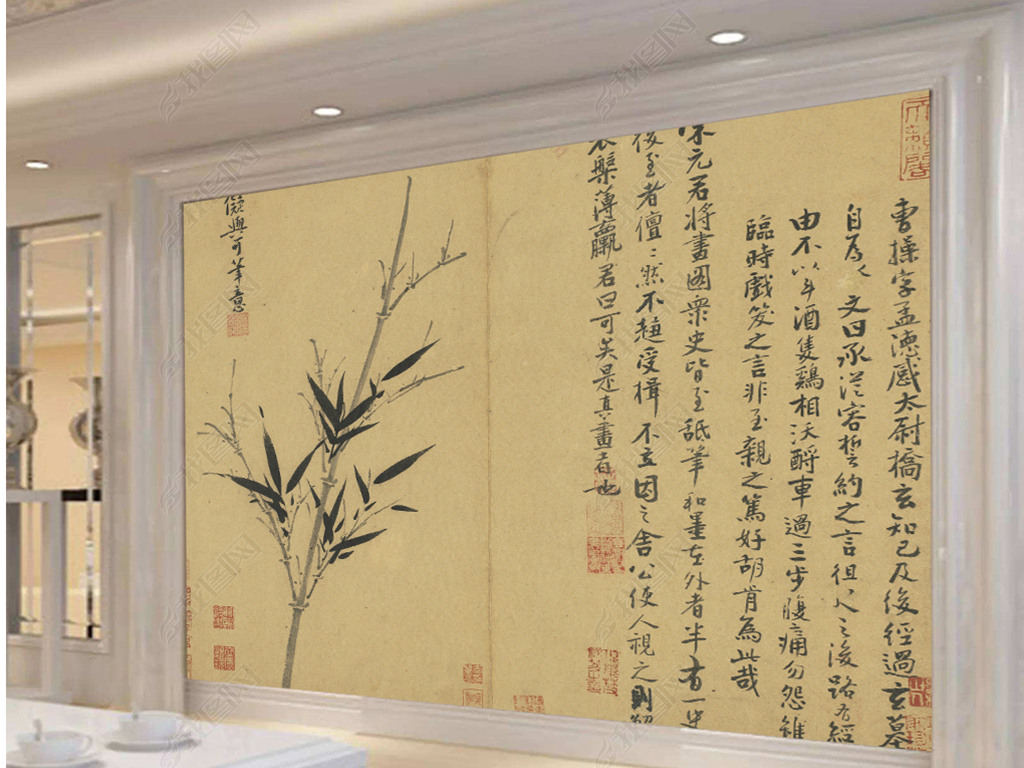 曹操字孟德感太尉橋玄知己及後經過玄墓
自為 文曰承從容誓約之言徂 之後路有經
由不以斗酒隻鷄相沃酹車過三步腹痛勿怨雖
臨時戲笑之言非至親之篤好胡肯為此哉
宋元君將畫圖衆史皆至舐筆和墨在外者半有一史
後至者儃〻然不趨受揖不立因之舍公使人視之則解
衣槃薄臝君曰可矣是真畫者也
儗與可筆意